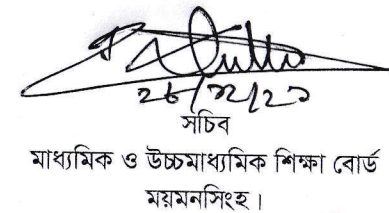 সচিব
মাধ্যমিক ও উচ্চমাধ্যমিক শিক্ষা বোর্ড
ময়মনসিংহ।